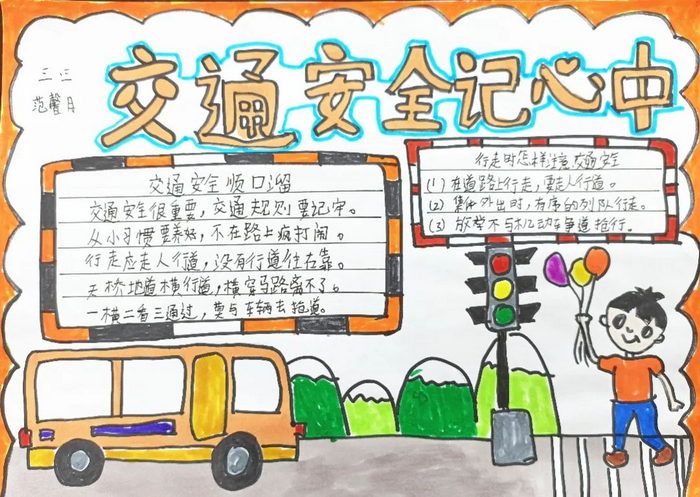 交通安全记心中
三.三
范馨月
交通安全顺口溜
交通安全很重要，交通规则要记牢。
从小习惯要养好，不在路上疯打闹。
行走应走人行道，没有行道往右靠。
天桥地道横行道，横穿马路离不了。
一横二看三通过，莫与车辆去抢道。
行走时怎样注意交通安全
(1) 在道路上行走，要走人行道。
(2) 集体外出时，有序的列队行走。
(3) 放学不与机动车争道抢行。